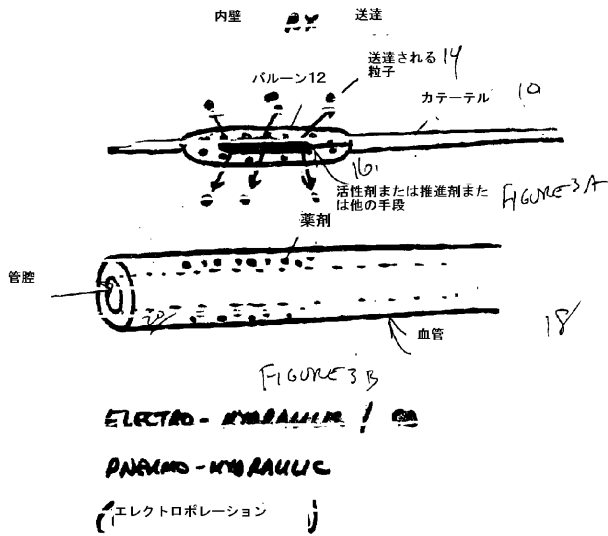 内壁 RX 送達
バルーン12
送達される 14
粒子
カテーテル 10
16
活性剤または推進剤また
は他の手段
FIGURE 3A
薬剤
管腔
20
血管
18
FIGURE 3B
ELECTRO-HYDRAULIC /
PNEUMO-HYDRAULIC
(エレクトロポレーション)